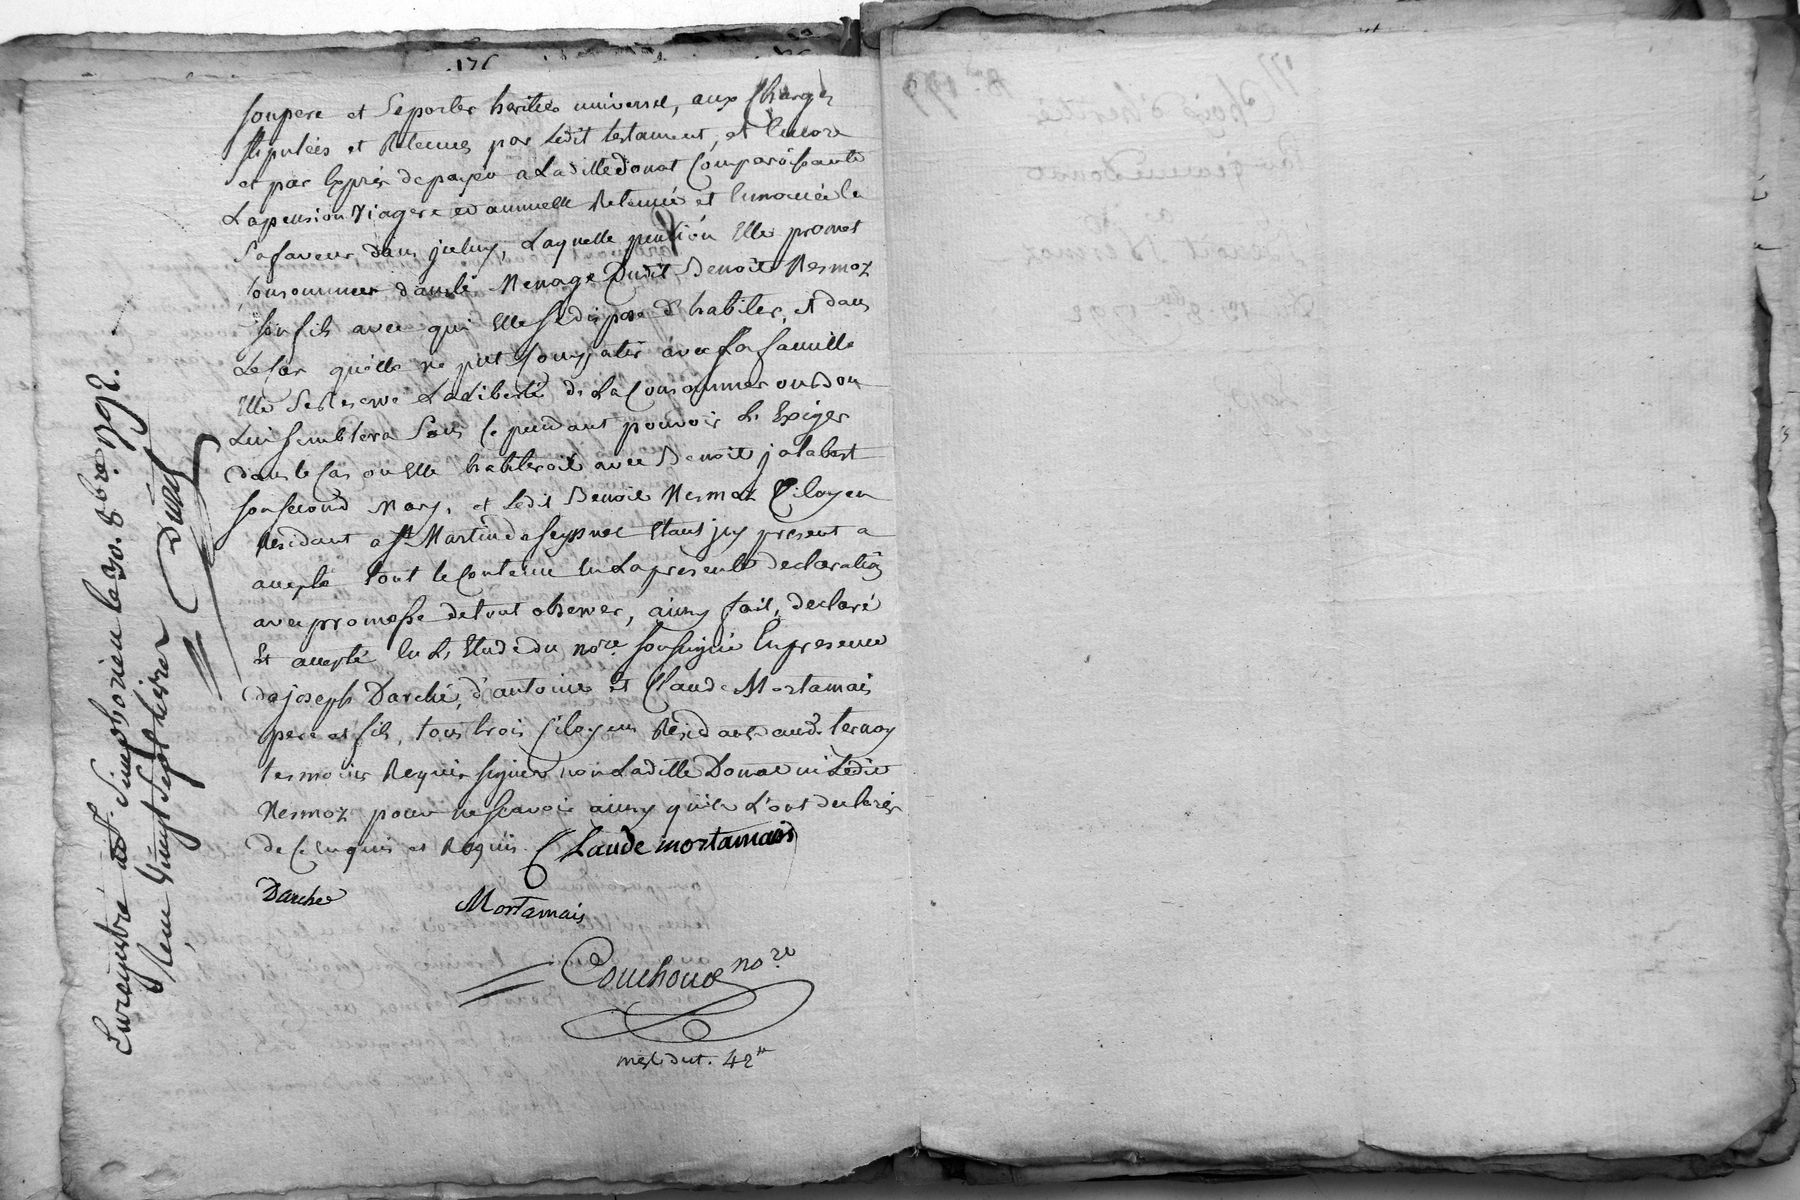 son pere et se porter heritier universel, aux Charges
stipulées et Retenues par Ledit testament, et Encore
et par Exprés de payer a La ditte donat Comparoissante
La pension Viagere et annuelle Retenüe et Enoncée En
Sa faveur dans jceluy, Laquelle pention Elle promet
Consommer dans le Menage Dudit Benoit Nesmoz
son fils avec qui Elle se dispose d'habiter, et dans
Le Cas quelle ne put Compatir avec Sa famille
Elle Se Reserve La Liberté de La Consommer ou Bon
Lui semblera Sans Cependant pouvoir L'Exiger
dans le Cas ou Elle habiteroit avec Benoit jalabert
son second Mary, et Ledit Benoit Nesmoz Citoyen
Residant a St Martin de Seyssuel Etant jcy present a
accepté tout le Contenu En La presente declaration
avec promesse de tout observer, ainsy fait, declaré
Et accepté En L'Etude du nore soussigné En presence
de joseph Darché, d'antoine et Claude Mortamais
pere et fils, tous trois Citoyens Residants aud. ternay
tesmoins Requis signés non La ditte Donat ni Ledit
Nesmoz pour ne sçavoir ainsy qu'ils L'ont declarés
de Ce Enquis et Requis. Claude mortamais
Darche Mortamais
Couchoud nore
mex dut. 42
Enregistré a St. Simphorien le 30. 8bre. 1792.
Reçu Vingt Sept